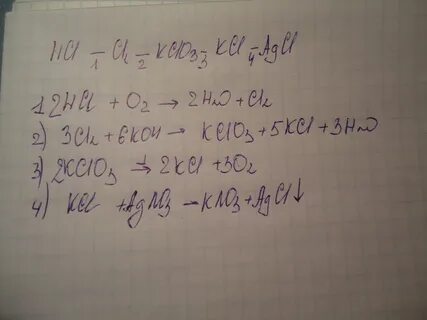 HCl -1 Cl₂ -2 KClO₃ -3 KCl -4 AgCl
1. 2HCl + O₂ → 2H₂O + Cl₂
2) 3Cl₂ + 6KOH → KClO₃ + 5KCl + 3H₂O
3) 2KClO₃ →t 2KCl + 3O₂
4) KCl + AgNO₃ → KNO₃ + AgCl↓